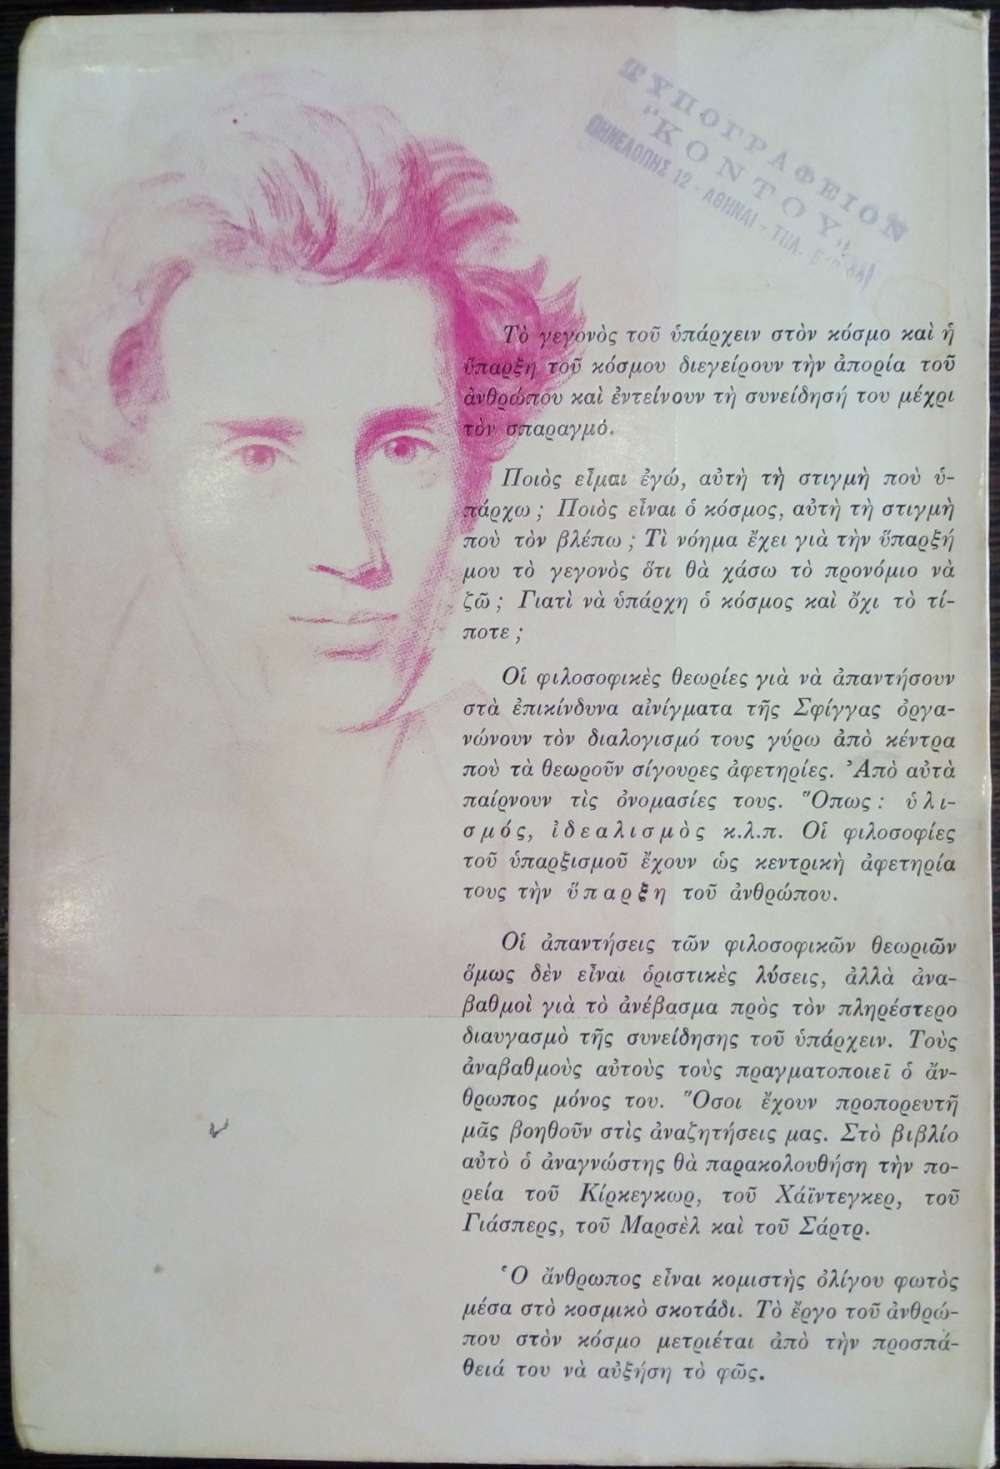 ΤΥΠΟΓΡΑΦΕΙΟΝ
"ΚΟΝΤΟΥ"
ΠΗΝΕΛΟΠΗΣ 12 - ΑΘΗΝΑΙ - ΤΗΛ.
Τὸ γεγονὸς τοῦ ὑπάρχειν στὸν κόσμο καὶ ἡ
ὕπαρξη τοῦ κόσμου διεγείρουν τὴν ἀπορία τοῦ
ἀνθρώπου καὶ ἐντείνουν τὴ συνείδησή του μέχρι
τὸν σπαραγμό.
Ποιὸς εἶμαι ἐγώ, αὐτὴ τὴ στιγμὴ ποὺ ὑ-
πάρχω ; Ποιὸς εἶναι ὁ κόσμος, αὐτὴ τὴ στιγμὴ
ποὺ τὸν βλέπω ; Τὶ νόημα ἔχει γιὰ τὴν ὕπαρξή
μου τὸ γεγονὸς ὅτι θὰ χάσω τὸ προνόμιο νὰ
ζῶ ; Γιατὶ νὰ ὑπάρχη ὁ κόσμος καὶ ὄχι τὸ τί-
ποτε ;
Οἱ φιλοσοφικὲς θεωρίες γιὰ νὰ ἀπαντήσουν
στὰ ἐπικίνδυνα αἰνίγματα τῆς Σφίγγας ὀργα-
νώνουν τὸν διαλογισμό τους γύρω ἀπὸ κέντρα
ποὺ τὰ θεωροῦν σίγουρες ἀφετηρίες. Ἀπὸ αὐτὰ
παίρνουν τὶς ὀνομασίες τους. Ὅπως : ὑλι-
σμός, ἰδεαλισμὸς κ.λ.π. Οἱ φιλοσοφίες
τοῦ ὑπαρξισμοῦ ἔχουν ὡς κεντρικὴ ἀφετηρία
τους τὴν ὕπαρξη τοῦ ἀνθρώπου.
Οἱ ἀπαντήσεις τῶν φιλοσοφικῶν θεωριῶν
ὅμως δὲν εἶναι ὁριστικὲς λύσεις, ἀλλὰ ἀνα-
βαθμοὶ γιὰ τὸ ἀνέβασμα πρὸς τὸν πληρέστερο
διαυγασμὸ τῆς συνείδησης τοῦ ὑπάρχειν. Τοὺς
ἀναβαθμοὺς αὐτοὺς τοὺς πραγματοποιεῖ ὁ ἄν-
θρωπος μόνος του. Ὅσοι ἔχουν προπορευτῆ
μᾶς βοηθοῦν στὶς ἀναζητήσεις μας. Στὸ βιβλίο
αὐτὸ ὁ ἀναγνώστης θὰ παρακολουθήση τὴν πο-
ρεία τοῦ Κίρκεγκωρ, τοῦ Χάϊντεγκερ, τοῦ
Γιάσπερς, τοῦ Μαρσὲλ καὶ τοῦ Σάρτρ.
Ὁ ἄνθρωπος εἶναι κομιστὴς ὀλίγου φωτὸς
μέσα στὸ κοσμικὸ σκοτάδι. Τὸ ἔργο τοῦ ἀνθρώ-
που στὸν κόσμο μετριέται ἀπὸ τὴν προσπά-
θειά του νὰ αὐξήση τὸ φῶς.